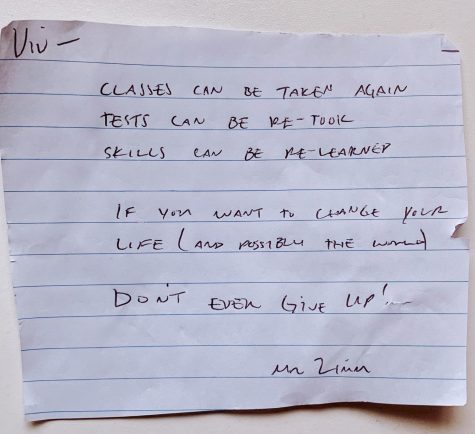 Viv —
CLASSES CAN BE TAKEN AGAIN
TESTS CAN BE RE-TOOK
SKILLS CAN BE RE-LEARNED
IF YOU WANT TO CHANGE YOUR
LIFE (AND POSSIBLY THE WORLD)
DON'T EVER GIVE UP!
Mr